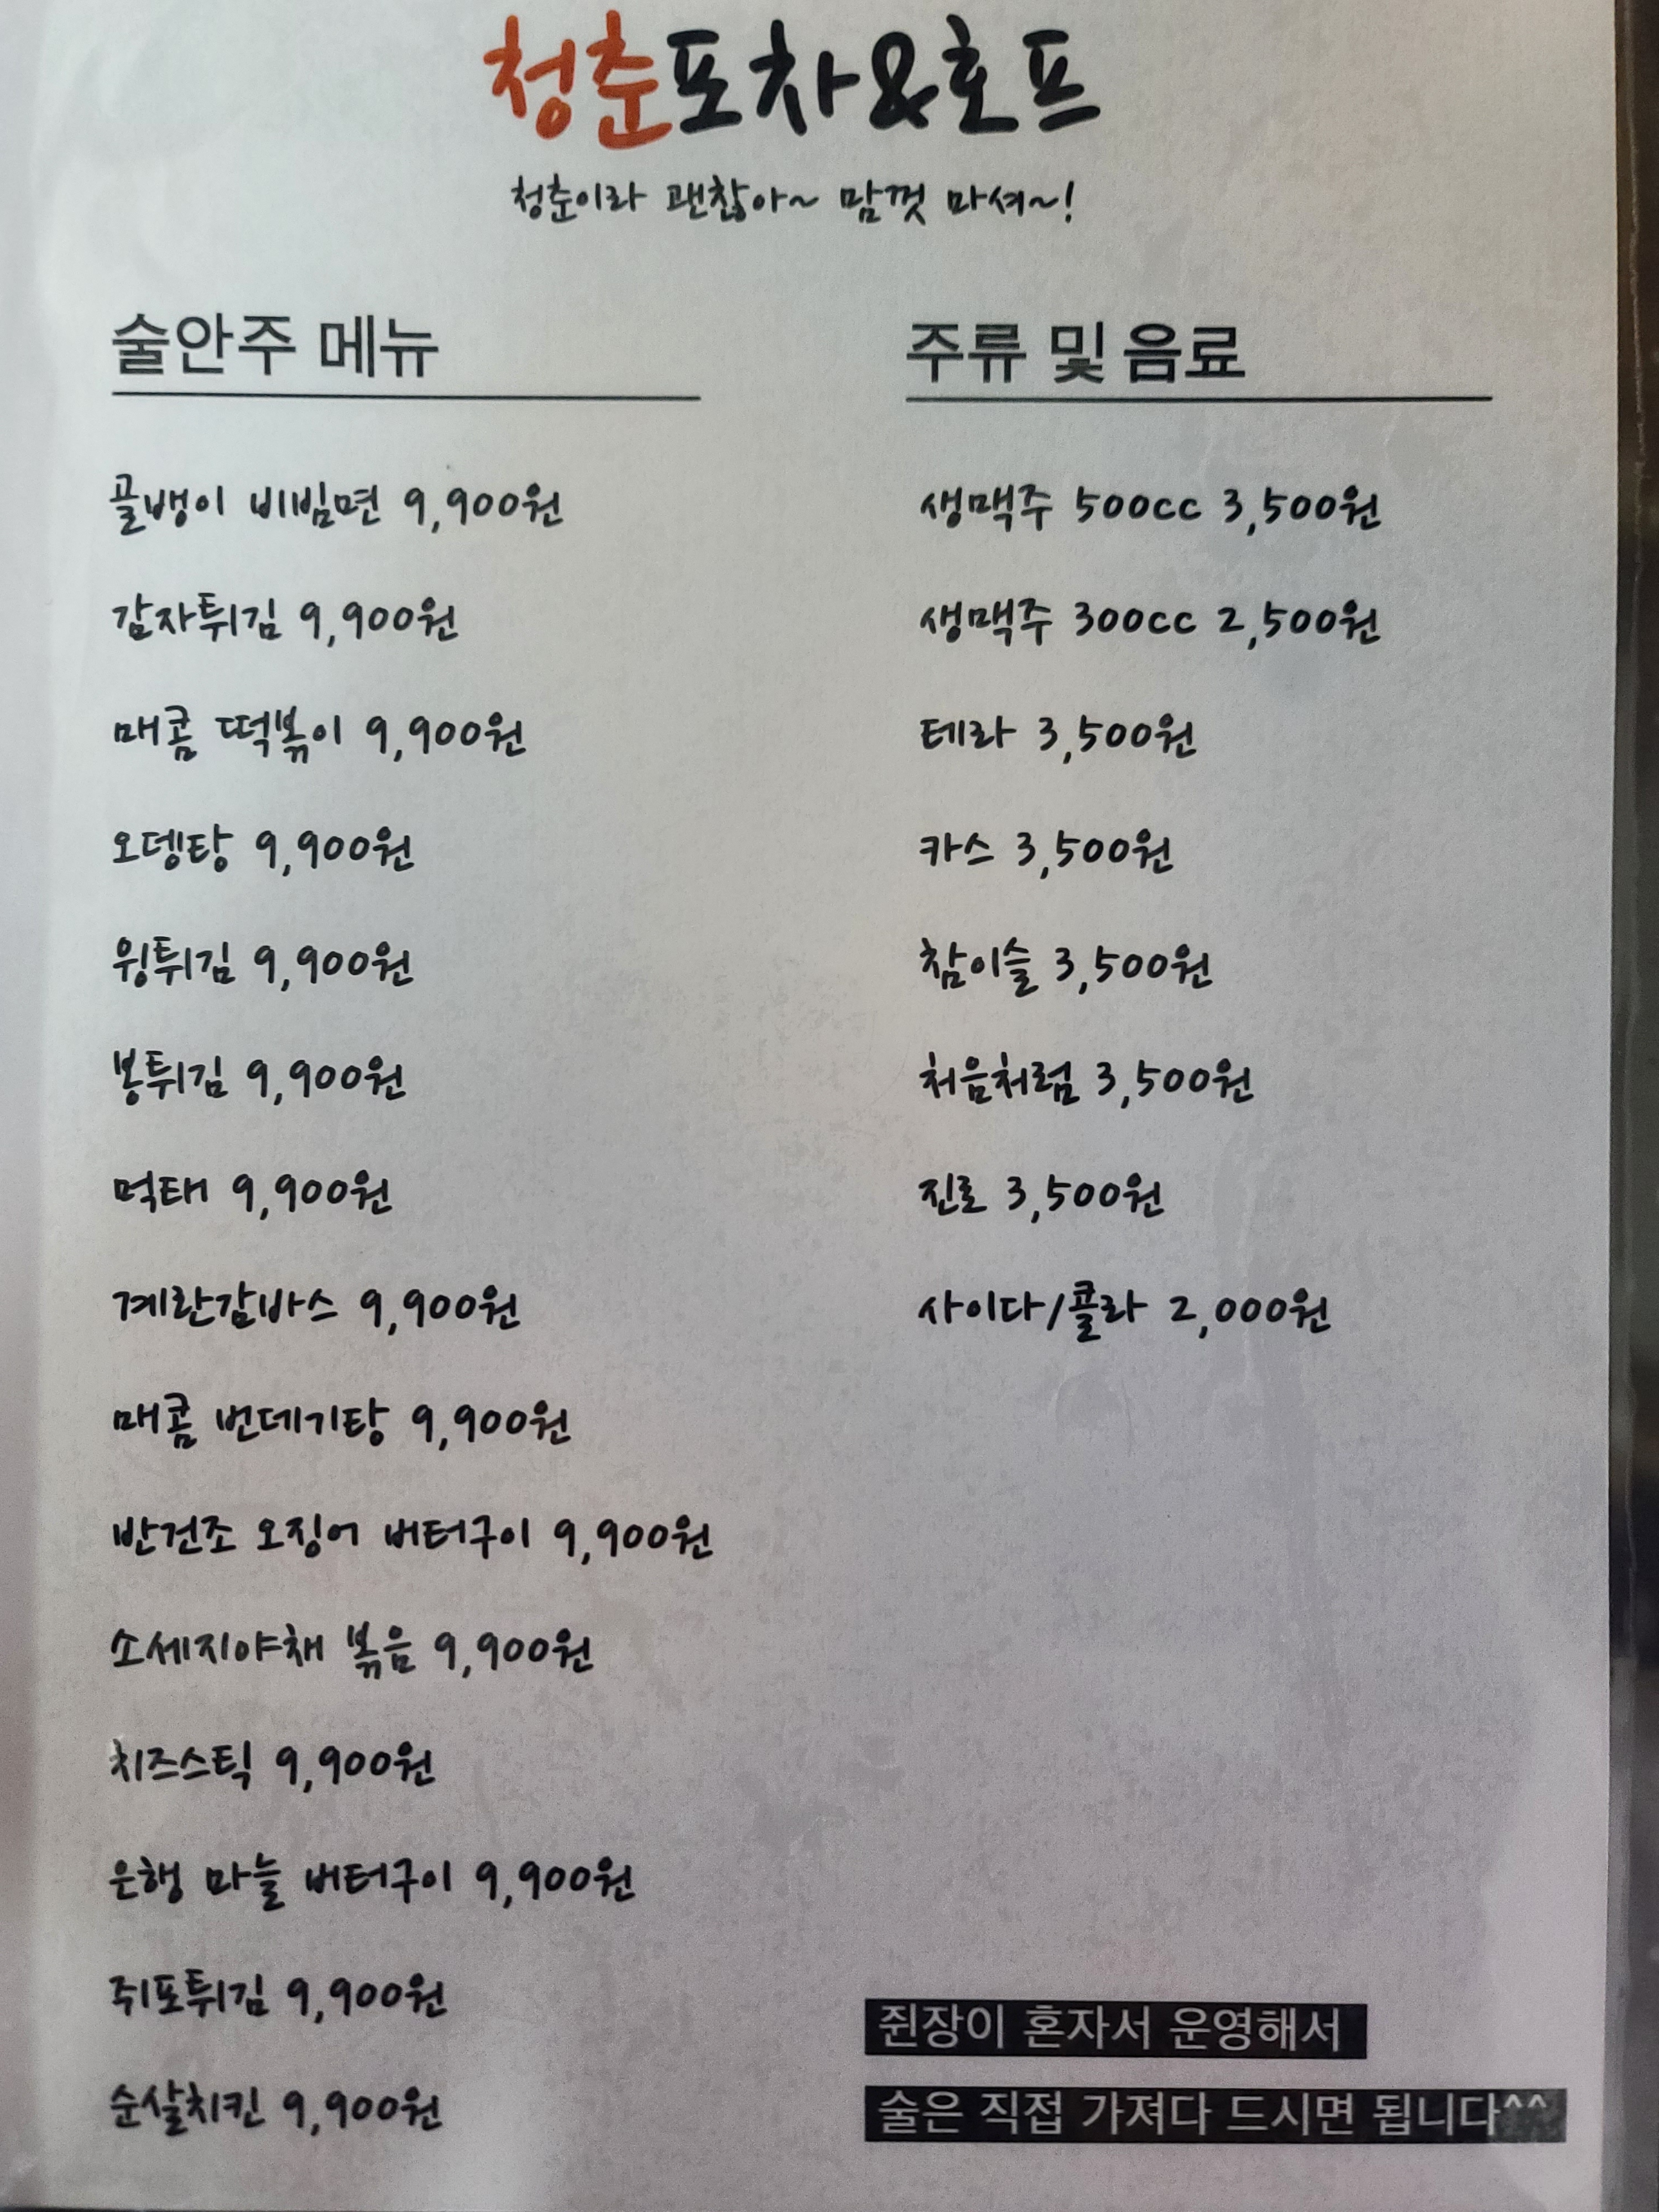 청춘포차&호프
청춘이라 괜찮아~ 맘껏 마셔~!
술안주 메뉴
골뱅이 비빔면 9,900원
감자튀김 9,900원
매콤 떡볶이 9,900원
오뎅탕 9,900원
윙튀김 9,900원
봉튀김 9,900원
먹태 9,900원
계란감바스 9,900원
매콤 번데기탕 9,900원
반건조 오징어 버터구이 9,900원
소세지야채 볶음 9,900원
치즈스틱 9,900원
은행 마늘 버터구이 9,900원
쥐포튀김 9,900원
순살치킨 9,900원
주류 및 음료
생맥주 500cc 3,500원
생맥주 300cc 2,500원
테라 3,500원
카스 3,500원
참이슬 3,500원
처음처럼 3,500원
진로 3,500원
사이다/콜라 2,000원
쥔장이 혼자서 운영해서
술은 직접 가져다 드시면 됩니다^^